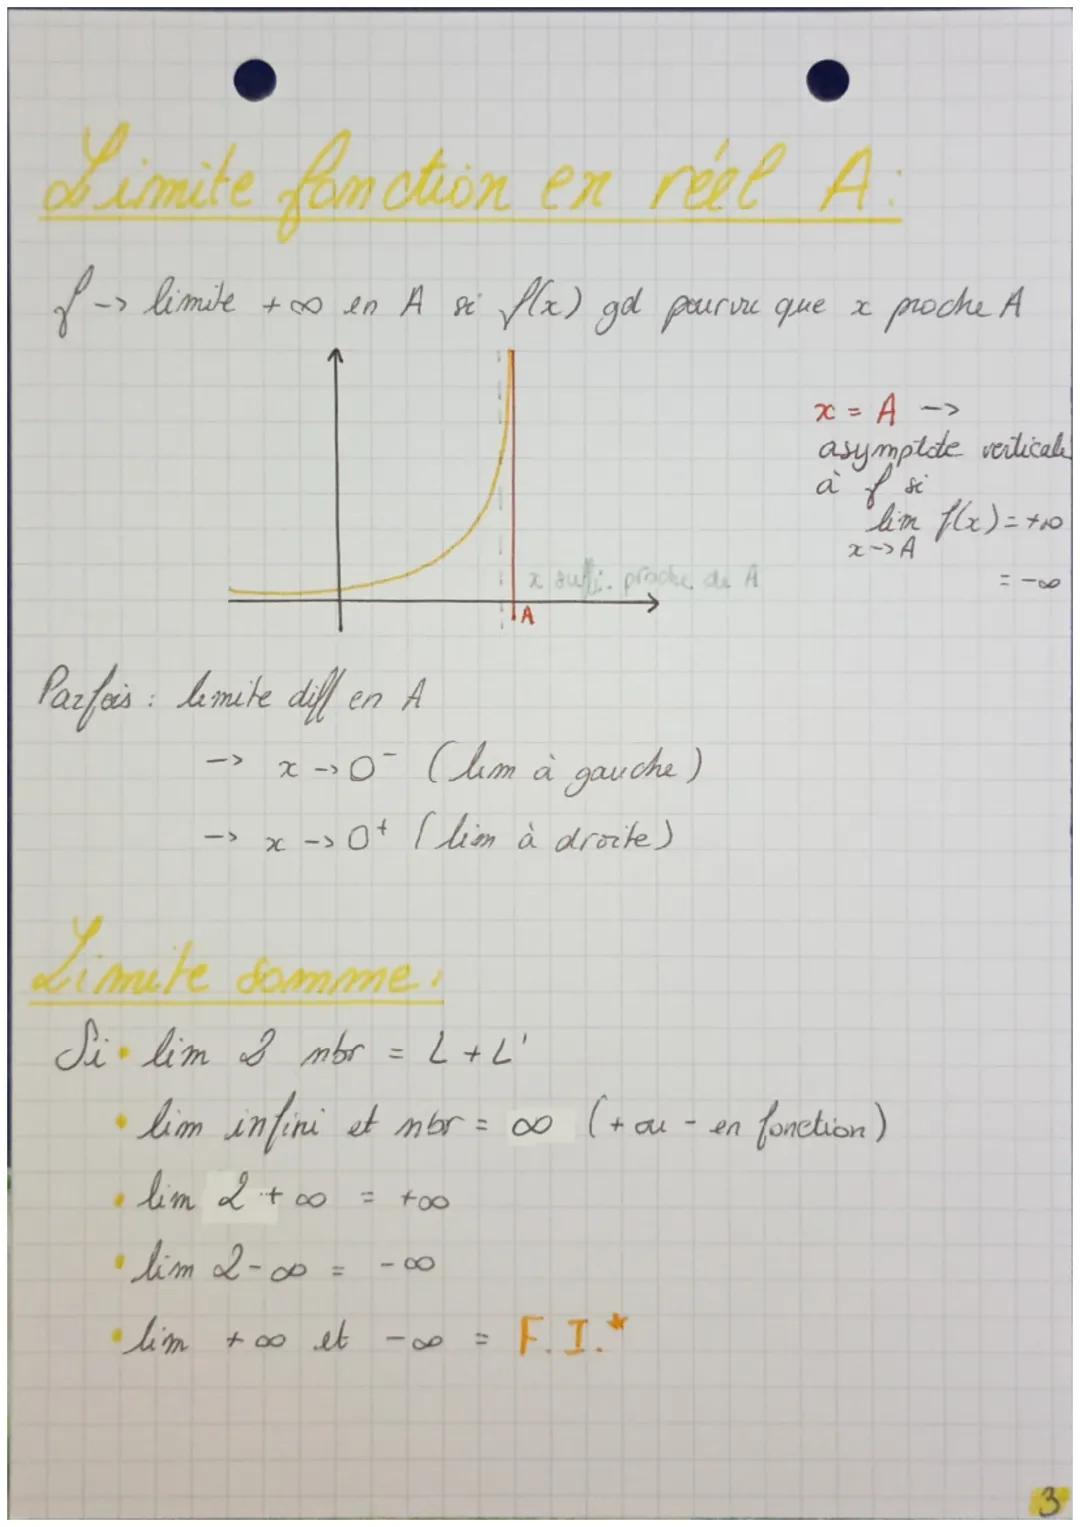 Limite fonction en réel A :
f -> limite +∞ en A si f(x) gd pourvu que x proche A
x = A ->
asymptote verticale
à f si
lim f(x) = +∞
x->A
= -∞
x suffi. proche de A
A
Parfois : limite diff en A
-> x -> 0⁻ (lim à gauche)
-> x -> 0⁺ (lim à droite)
Limite somme :
Si • lim 2 nbr = L + L'
• lim infini et nbr = ∞ (+ ou - en fonction)
• lim 2 +∞ = +∞
• lim 2 -∞ = -∞
• lim +∞ et -∞ = F.I.*
3